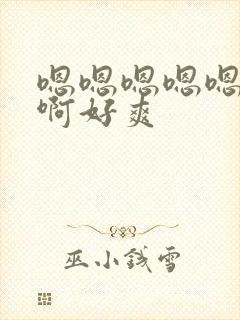 嗯嗯嗯嗯嗯
啊好爽
巫小钱雪